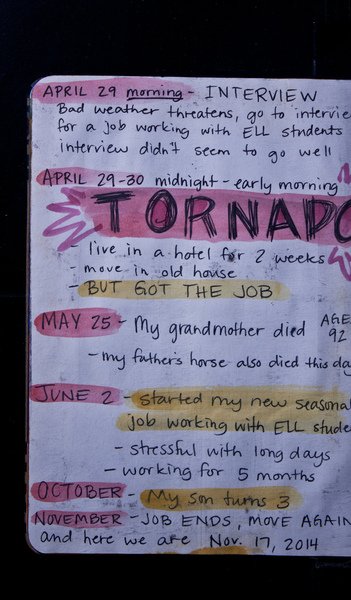 APRIL 29 morning - INTERVIEW
Bad weather threatens, go to intervie
for a job working with ELL students
interview didn't seem to go well
APRIL 29-30 midnight - early morning
TORNADO
- live in a hotel for 2 weeks
- move in old house
- BUT GOT THE JOB
MAY 25 - My grandmother died AGE
92
- my father's horse also died this da
JUNE 2 - started my new seasonal
job working with ELL stude
- stressful with long days
- working for 5 months
OCTOBER - My son turns 3
NOVEMBER - JOB ENDS, MOVE AGAIN
and here we are Nov. 17, 2014